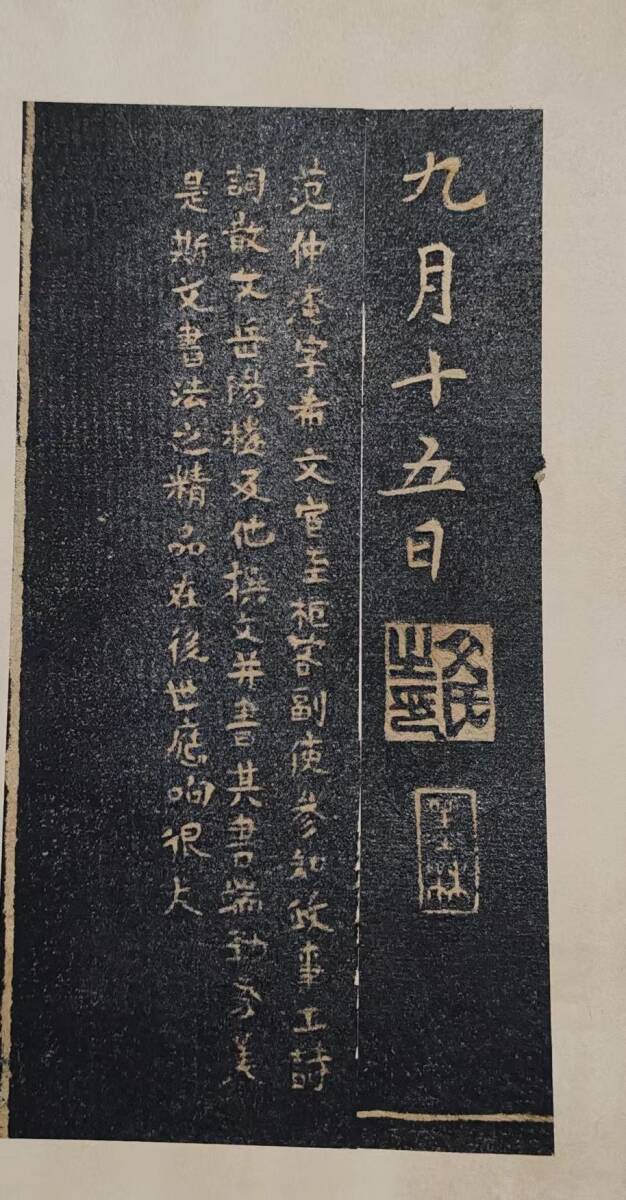 九月十五日
范仲淹字希文官至枢密副使参知政事工詩
詞散文岳陽楼及他撰文并書其書端劲秀美
是斯文書法之精品在後世應响很大